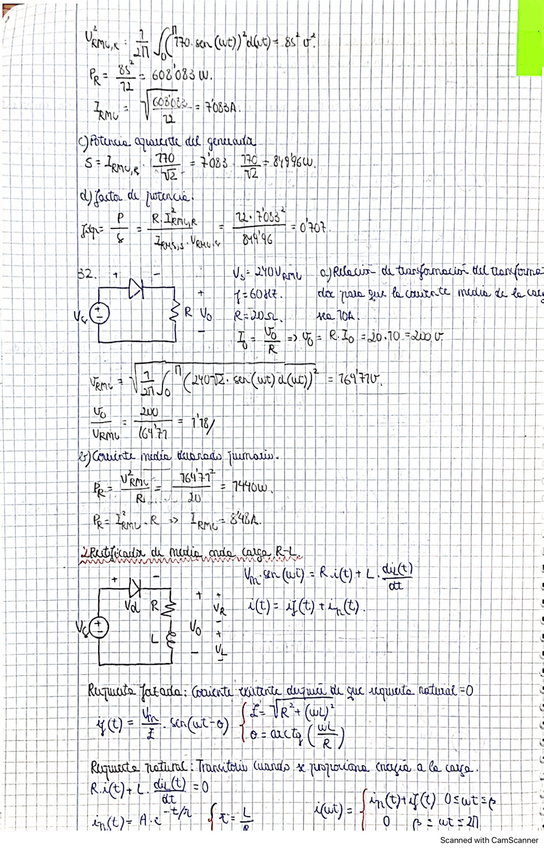 U²RMS,R : 1/2π ∫₀^π (170·sen(ωt))² d(ωt) = 85² v².
PR = 85²/12 = 608'083 W.
IRMS = √(608'083/12) = 7'083A.
c) Potencia aparente del generador
S = IRMS,R · 170/√2 = 7'083 · 170/√2 = 849'96W.
d) factor de potencia.
fdp = P/S = R·I²RMS,R / IRMS,S·VRMS,S = 12·7'083²/849'96 = 0'707.
32.
+ - Vs R + V0 -
Vs = 240VRMS a) Relación de transformación del transforma-
f = 60Hz. dor para que la corriente media de la carga
R = 20Ω. sea 10A.
I0 = V0/R => V0 = R·I0 = 20·10 = 200 v
VRMS = √(1/2π ∫₀^π (240√2·sen(ωt) d(ωt))²) = 169'71v.
V0/VRMS = 200/169'71 = 1'18/
b) Corriente media cuadrado primario.
PR = V²RMS/R = 169'71²/20 = 1440W.
PR = I²RMS·R => IRMS = 8'48A.
2. Rectificador de media onda carga R-L.
+ - Vd R L Vs + V0 - + VR - + VL -
Vm·sen(ωt) = R·i(t) + L·di(t)/dt
i(t) = if(t) + in(t).
Respuesta forzada: Corriente existente después de que respuesta natural = 0
if(t) = Vm/Z · sen(ωt-θ) { Z = √(R² + (ωL)²
θ = arctg(ωL/R)
Respuesta natural: Transitorio cuando se proporciona energía a la carga.
R·i(t) + L·di(t)/dt = 0
in(t) = A·e^(-t/τ) { τ = L/R
i(ωt) = { in(t) + if(t) 0 ≤ ωt ≤ β
0 β ≤ ωt ≤ 2π
Scanned with CamScanner